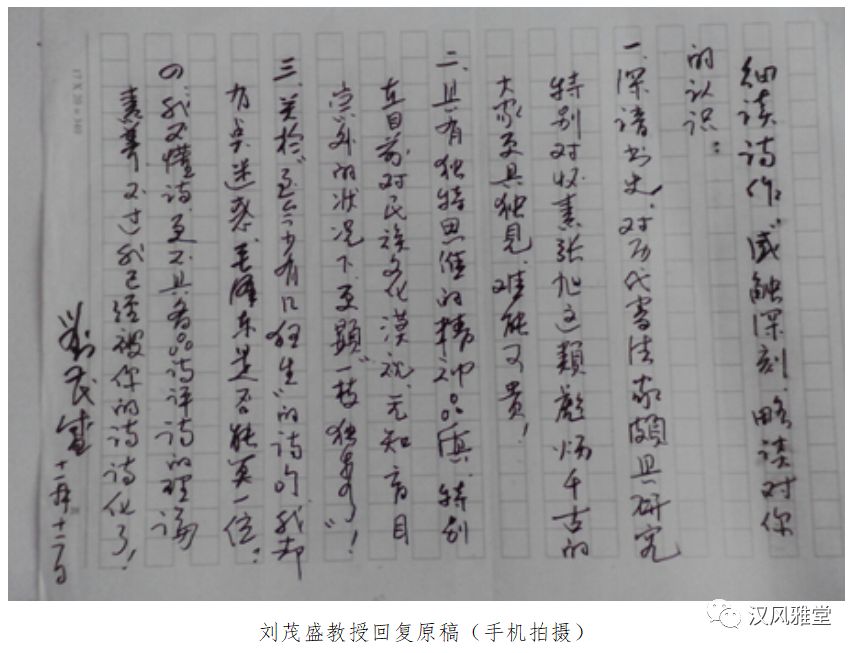 细读诗作，感触深刻，略谈对你
的认识：
一、深谙书史，对历代書法家頗具研究
特别对怀素张旭这類彪炳千古的
大家更具独見，难能可贵！
二、具有独特思维的精神品质，特别
在目前对民族文化漠视、无知盲目
崇外的状况下，更顕"一枝独秀了"！
三、关於"至今少有几狂生"的诗句，我却
有点迷惑，毛澤东是否能算一位？
四、我不懂诗，更不具备品诗评诗的理論
素养，不过我已经被你的诗诗化了！
劉茂盛 十二年十二月
刘茂盛教授回复原稿（手机拍摄）
汉风雅堂